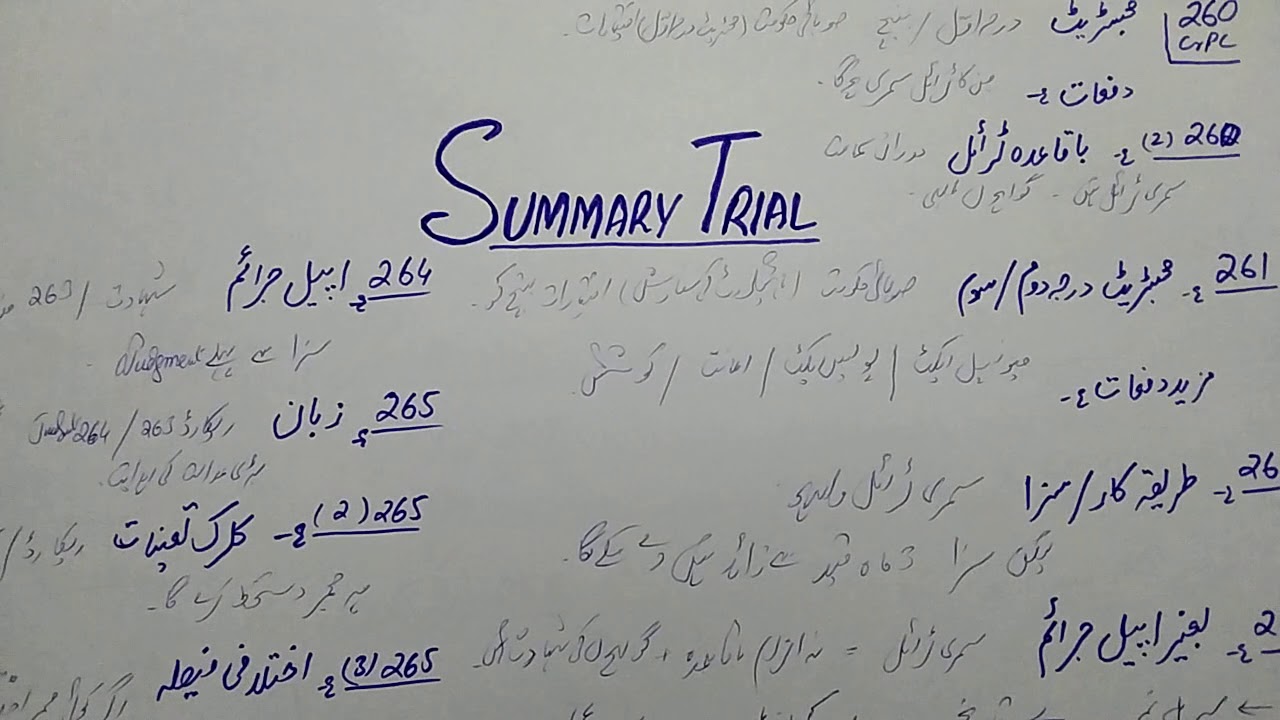 260 CrPC مجسٹریٹ درجہ اول / بنچ صوبائی حکومت (مجسٹریٹ درجہ اول) اختیارات۔
دفعات ۔ جن کا ٹرائل سمری ہوگا۔
260 (2) ۔ باقاعدہ ٹرائل دوران سماعت
سمری ٹرائل نہیں ۔ گواہ
SUMMARY TRIAL
261 ۔ مجسٹریٹ درجہ دوم / سوم صوبائی حکومت (ہائیکورٹ کی سفارش) اختیارات بنچ کو۔
مزید دفعات ۔ میونسپل ایکٹ / پولیس ایکٹ / اعانت / کوشش
26 ۔ طریقہ کار / سزا سمری ٹرائل
لیکن سزا 03 ماہ قید سے زائد نہیں دے سکے گا۔
2 ۔ بغیر اپیل جرائم سمری ٹرائل = نہ الزام باقاعدہ + گواہوں کی شہادت
264 ۔ اپیل جرائم شہادت / 263
سزا سے پہلے Judgment ۔
265 ۔ زبان ریکارڈ 263 / 264
265 (2) ۔ کلرک تعینات ریکارڈ /
پہ ممبر دستخط کرے گا۔
265 (3) ۔ اختلافی فیصلہ اگر کوئی ممبر